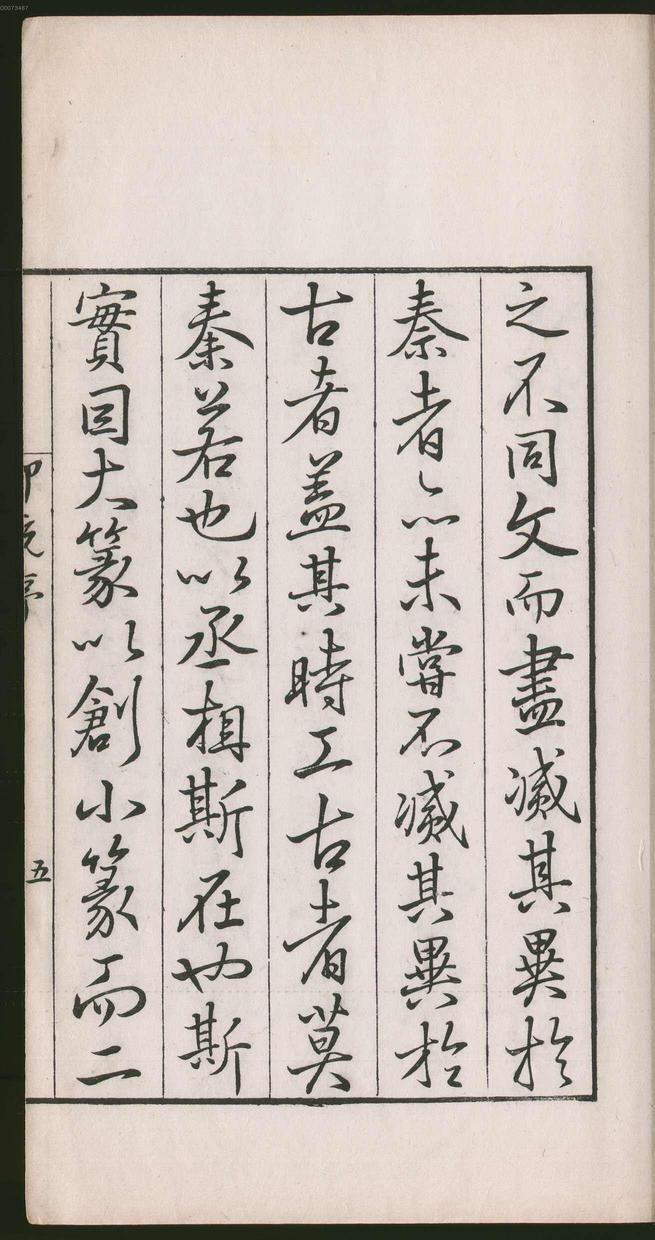 之不同文而盡滅其異於
秦者亦未嘗不滅其異於
古者蓋其時工古者莫
秦若也以丞相斯在也斯
實因大篆以創小篆而二
印統序
五
00073467